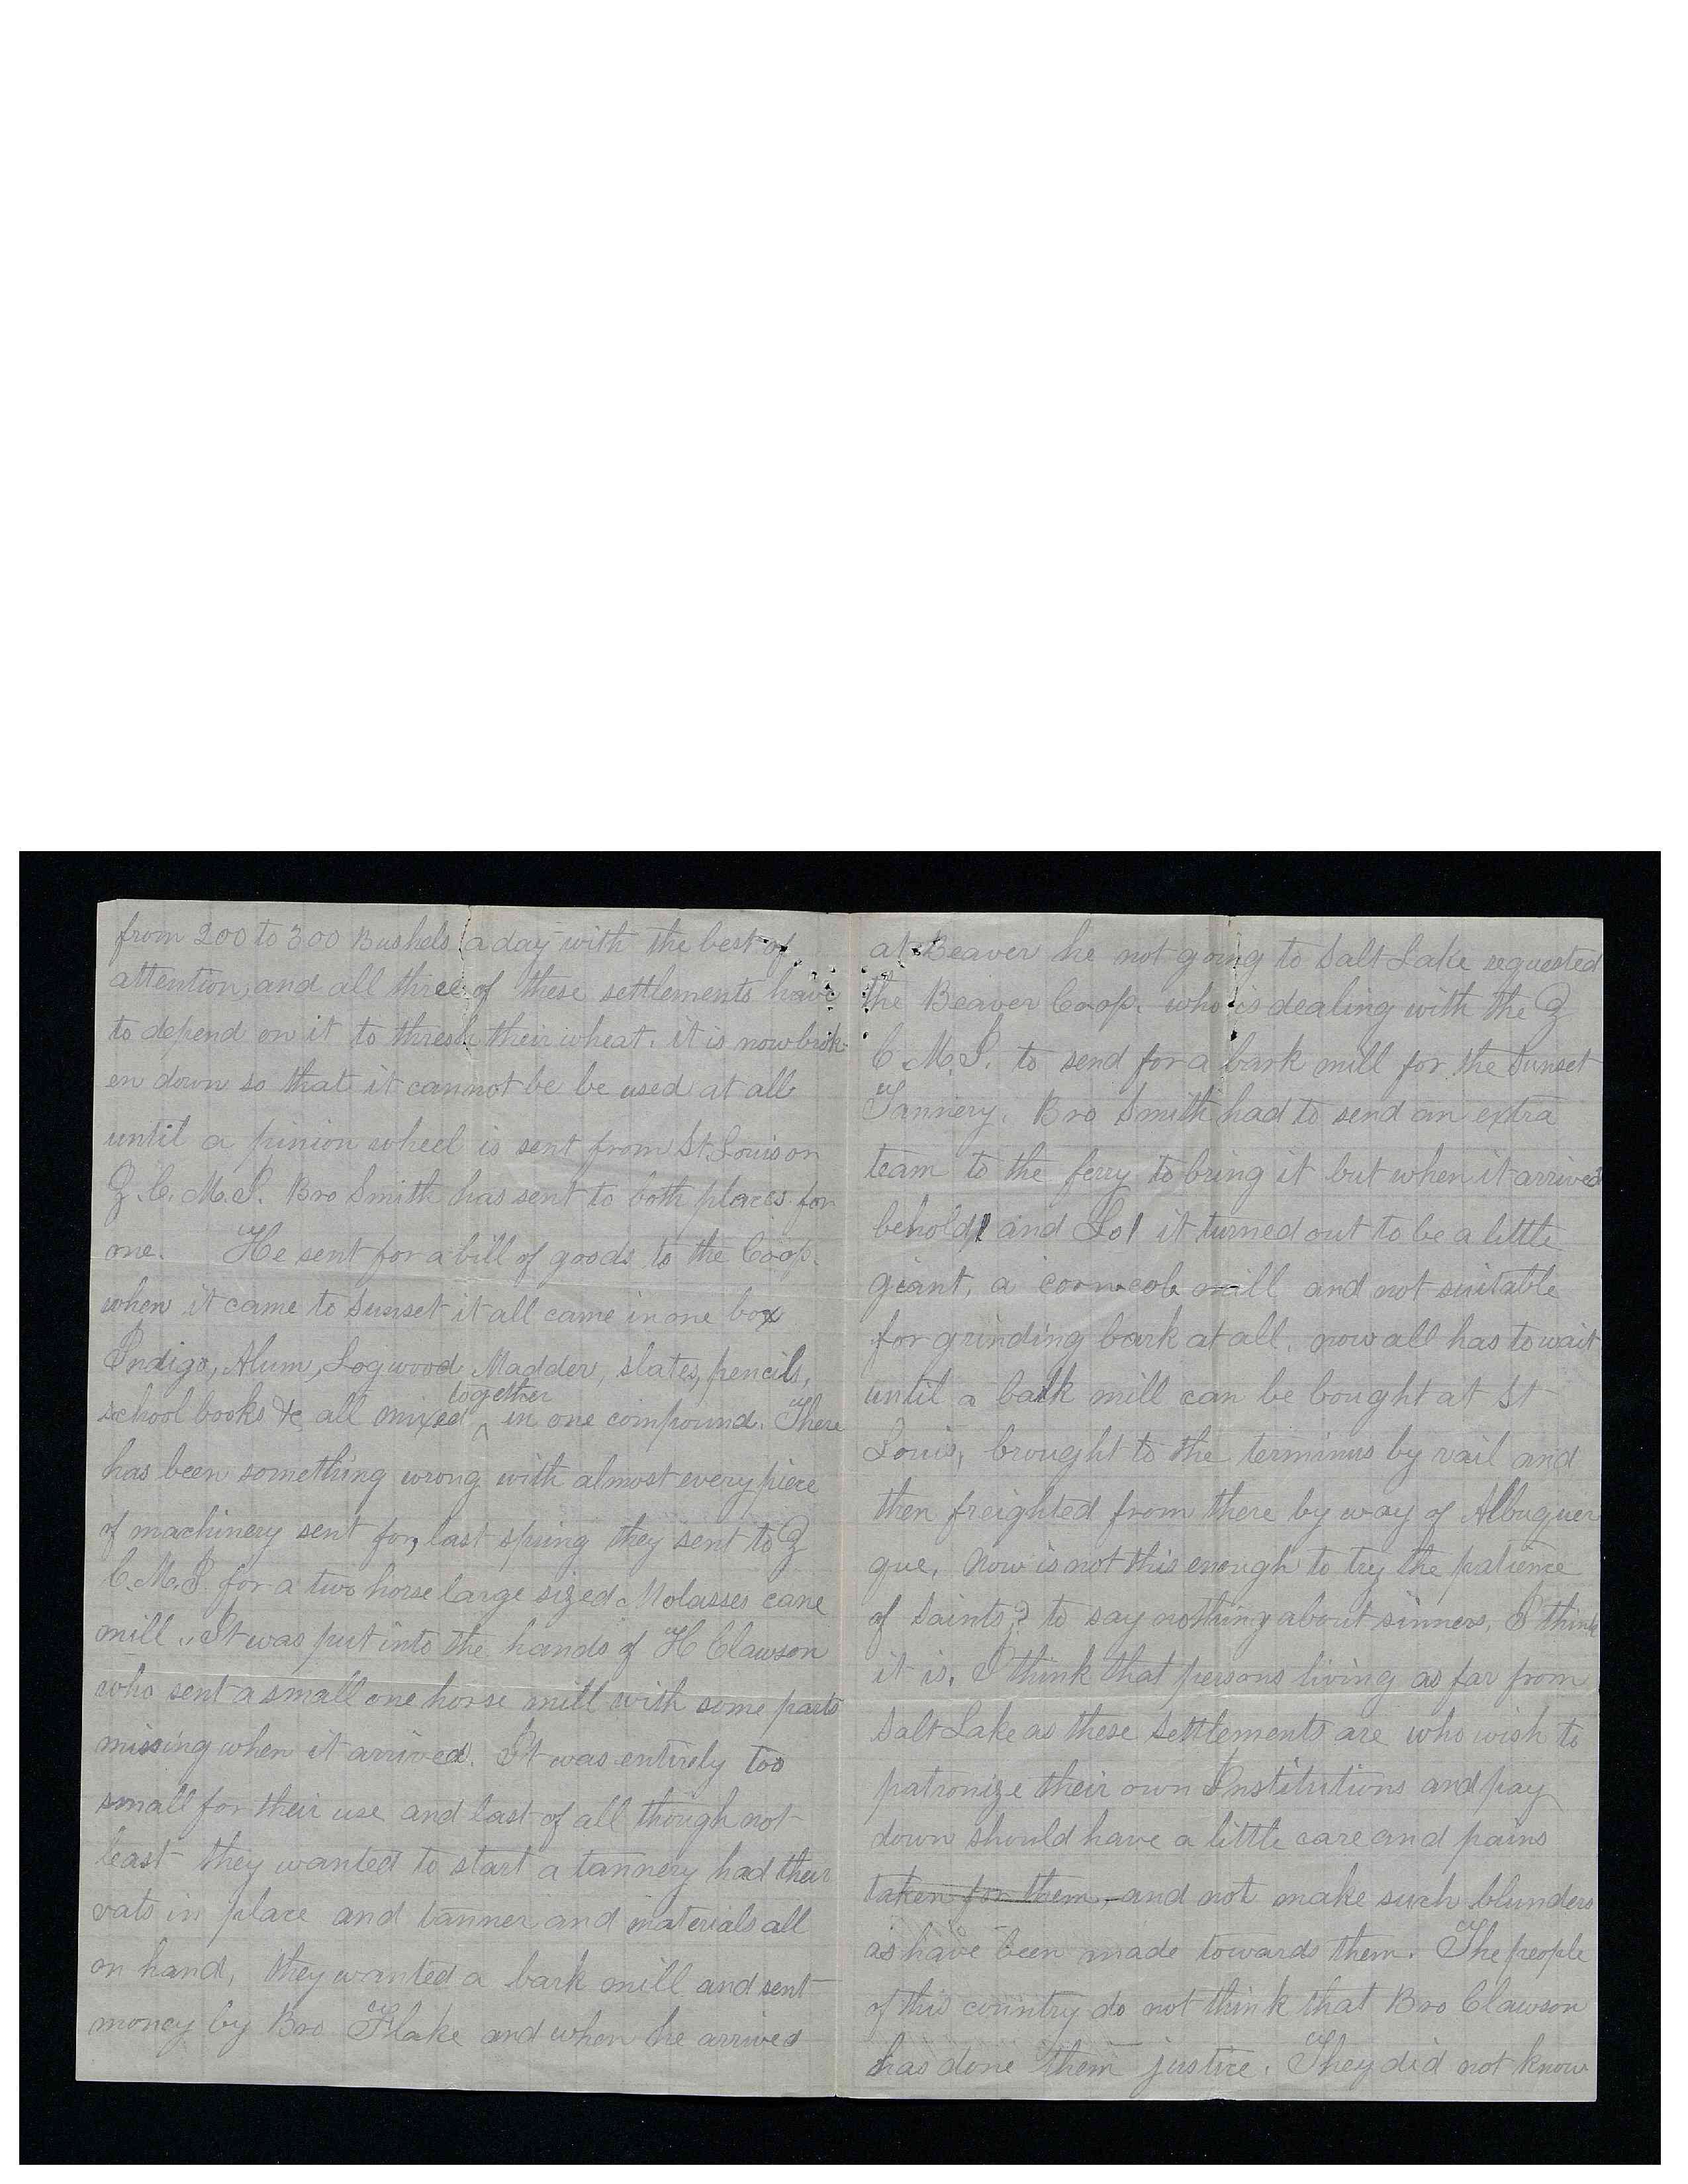 from 200 to 300 Bushels a day with the best of
attention, and all three of these settlements have
to depend on it to thresh their wheat. it is now brok-
en down so that it cannot be be used at all
until a pinion wheel is sent from St. Louis or
Z. C. M. I. Bro Smith has sent to both places for
one. He sent for a bill of goods to the Coop.
when it came to Sunset it all came in one box
Indigo, Alum, Logwood Madder, slates, pencils,
together
school books &c all mixed ^ in one compound. There
has been something wrong with almost every piece
of machinery sent for, last spring they sent to Z
C. M. I. for a two horse large sized Molasses cane
mill. It was put into the hands of H Clawson
who sent a small one horse mill with some parts
missing when it arrived. It was entirely too
small for their use and last of all though not
least they wanted to start a tannery had their
vats in place and tanner and materials all
on hand, they wanted a bark mill and sent
money by Bro Flake and when he arrived
at Beaver he not going to Salt Lake requested
the Beaver Coop. who is dealing with the Z
C. M. I. to send for a bark mill for the Sunset
Tannery. Bro Smith had to send an extra
team to the ferry to bring it but when it arrived
behold! and Lo! it turned out to be a little
giant, a corncob mill and not suitable
for grinding bark at all. now all has to wait
until a bark mill can be bought at St
Louis, brought to the terminus by rail and
then freighted from there by way of Albuquer
que. Now is not this enough to try the patience
of Saints? to say nothing about sinners, I think
it is. I think that persons living as far from
Salt Lake as these settlements are who wish to
patronize their own Institutions and pay
down should have a little care and pains
taken for them, and not make such blunders
as have been made towards them. The people
of this country do not think that Bro Clawson
has done them justice. They did not know